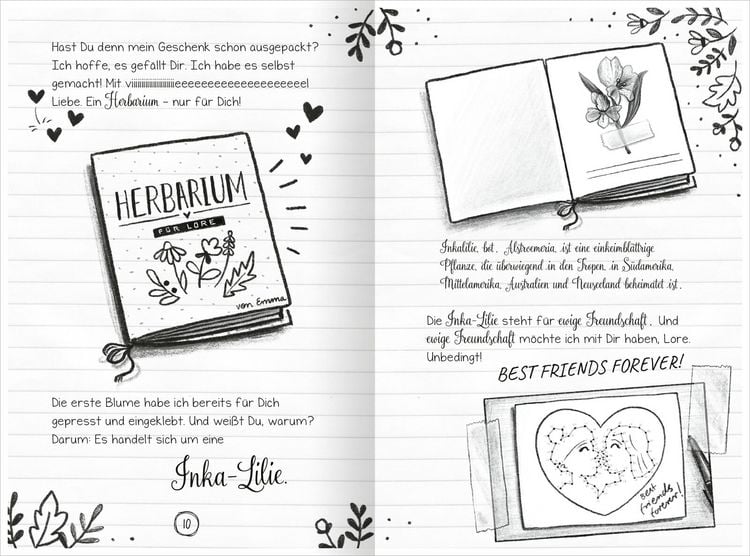 Hast Du denn mein Geschenk schon ausgepackt?
Ich hoffe, es gefällt Dir. Ich habe es selbst
gemacht! Mit viiiiiiiiiiiiiiiiiiiiieeeeeeeeeeeeeeeeeeeeel
Liebe. Ein Herbarium – nur für Dich!
HERBARIUM
FÜR LORE
von Emma
Die erste Blume habe ich bereits für Dich
gepresst und eingeklebt. Und weißt Du, warum?
Darum: Es handelt sich um eine
Inka-Lilie.
10
Inkalilie, bot. Alstroemeria, ist eine einkeimblättrige
Pflanze, die überwiegend in den Tropen, in Südamerika,
Mittelamerika, Australien und Neuseeland beheimatet ist.
Die Inka-Lilie steht für ewige Freundschaft. Und
ewige Freundschaft möchte ich mit Dir haben, Lore.
Unbedingt!
BEST FRIENDS FOREVER!
Best
friends
forever!